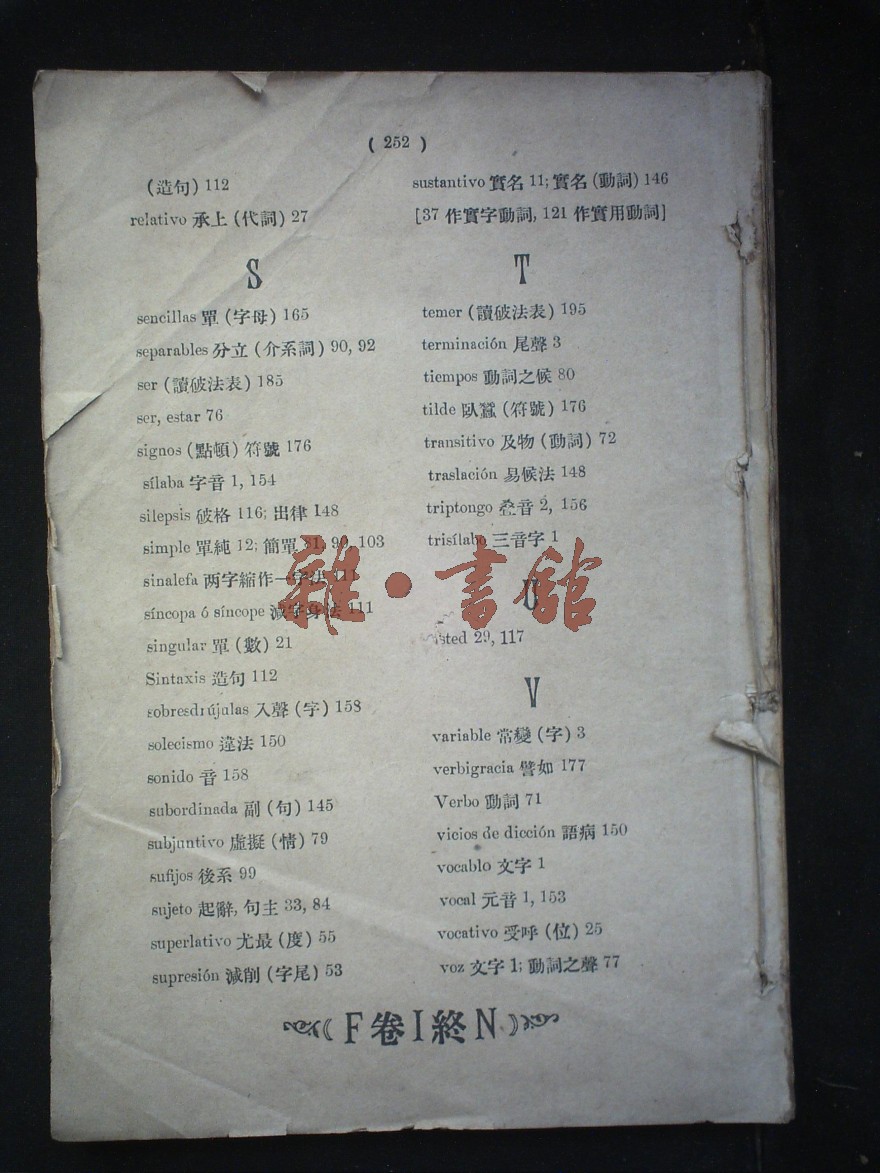 ( 252 )
(造句) 112
relativo 承上 (代詞) 27
S
sencillas 單 (字母) 165
separables 分立 (介系詞) 90, 92
ser (讀破法表) 185
ser, estar 76
signos (點頓) 符號 176
sílaba 字音 1, 154
silepsis 破格 116; 出律 148
simple 單純 12; 簡單 81, 90, 103
sinalefa 两字縮作一字法 111
síncopa ó síncope 減字身法 111
singular 單 (數) 21
Sintaxis 造句 112
sobresdrújulas 入聲 (字) 158
solecismo 違法 150
sonido 音 158
subordinada 副 (句) 145
subjuntivo 虛擬 (情) 79
sufijos 後系 99
sujeto 起辭, 句主 33, 84
superlativo 尤最 (度) 55
supresión 減削 (字尾) 53
sustantivo 實名 11; 實名 (動詞) 146
[37 作實字動詞, 121 作實用動詞]
T
temer (讀破法表) 195
terminación 尾聲 3
tiempos 動詞之候 80
tilde 臥蠶 (符號) 176
transitivo 及物 (動詞) 72
traslación 易候法 148
triptongo 叠音 2, 156
trisílabo 三音字 1
U
usted 29, 117
V
variable 常變 (字) 3
verbigracia 譬如 177
Verbo 動詞 71
vicios de dicción 語病 150
vocablo 文字 1
vocal 元音 1, 153
vocativo 受呼 (位) 25
voz 文字 1; 動詞之聲 77
《 F 卷 I 終 N 》
雜·書館